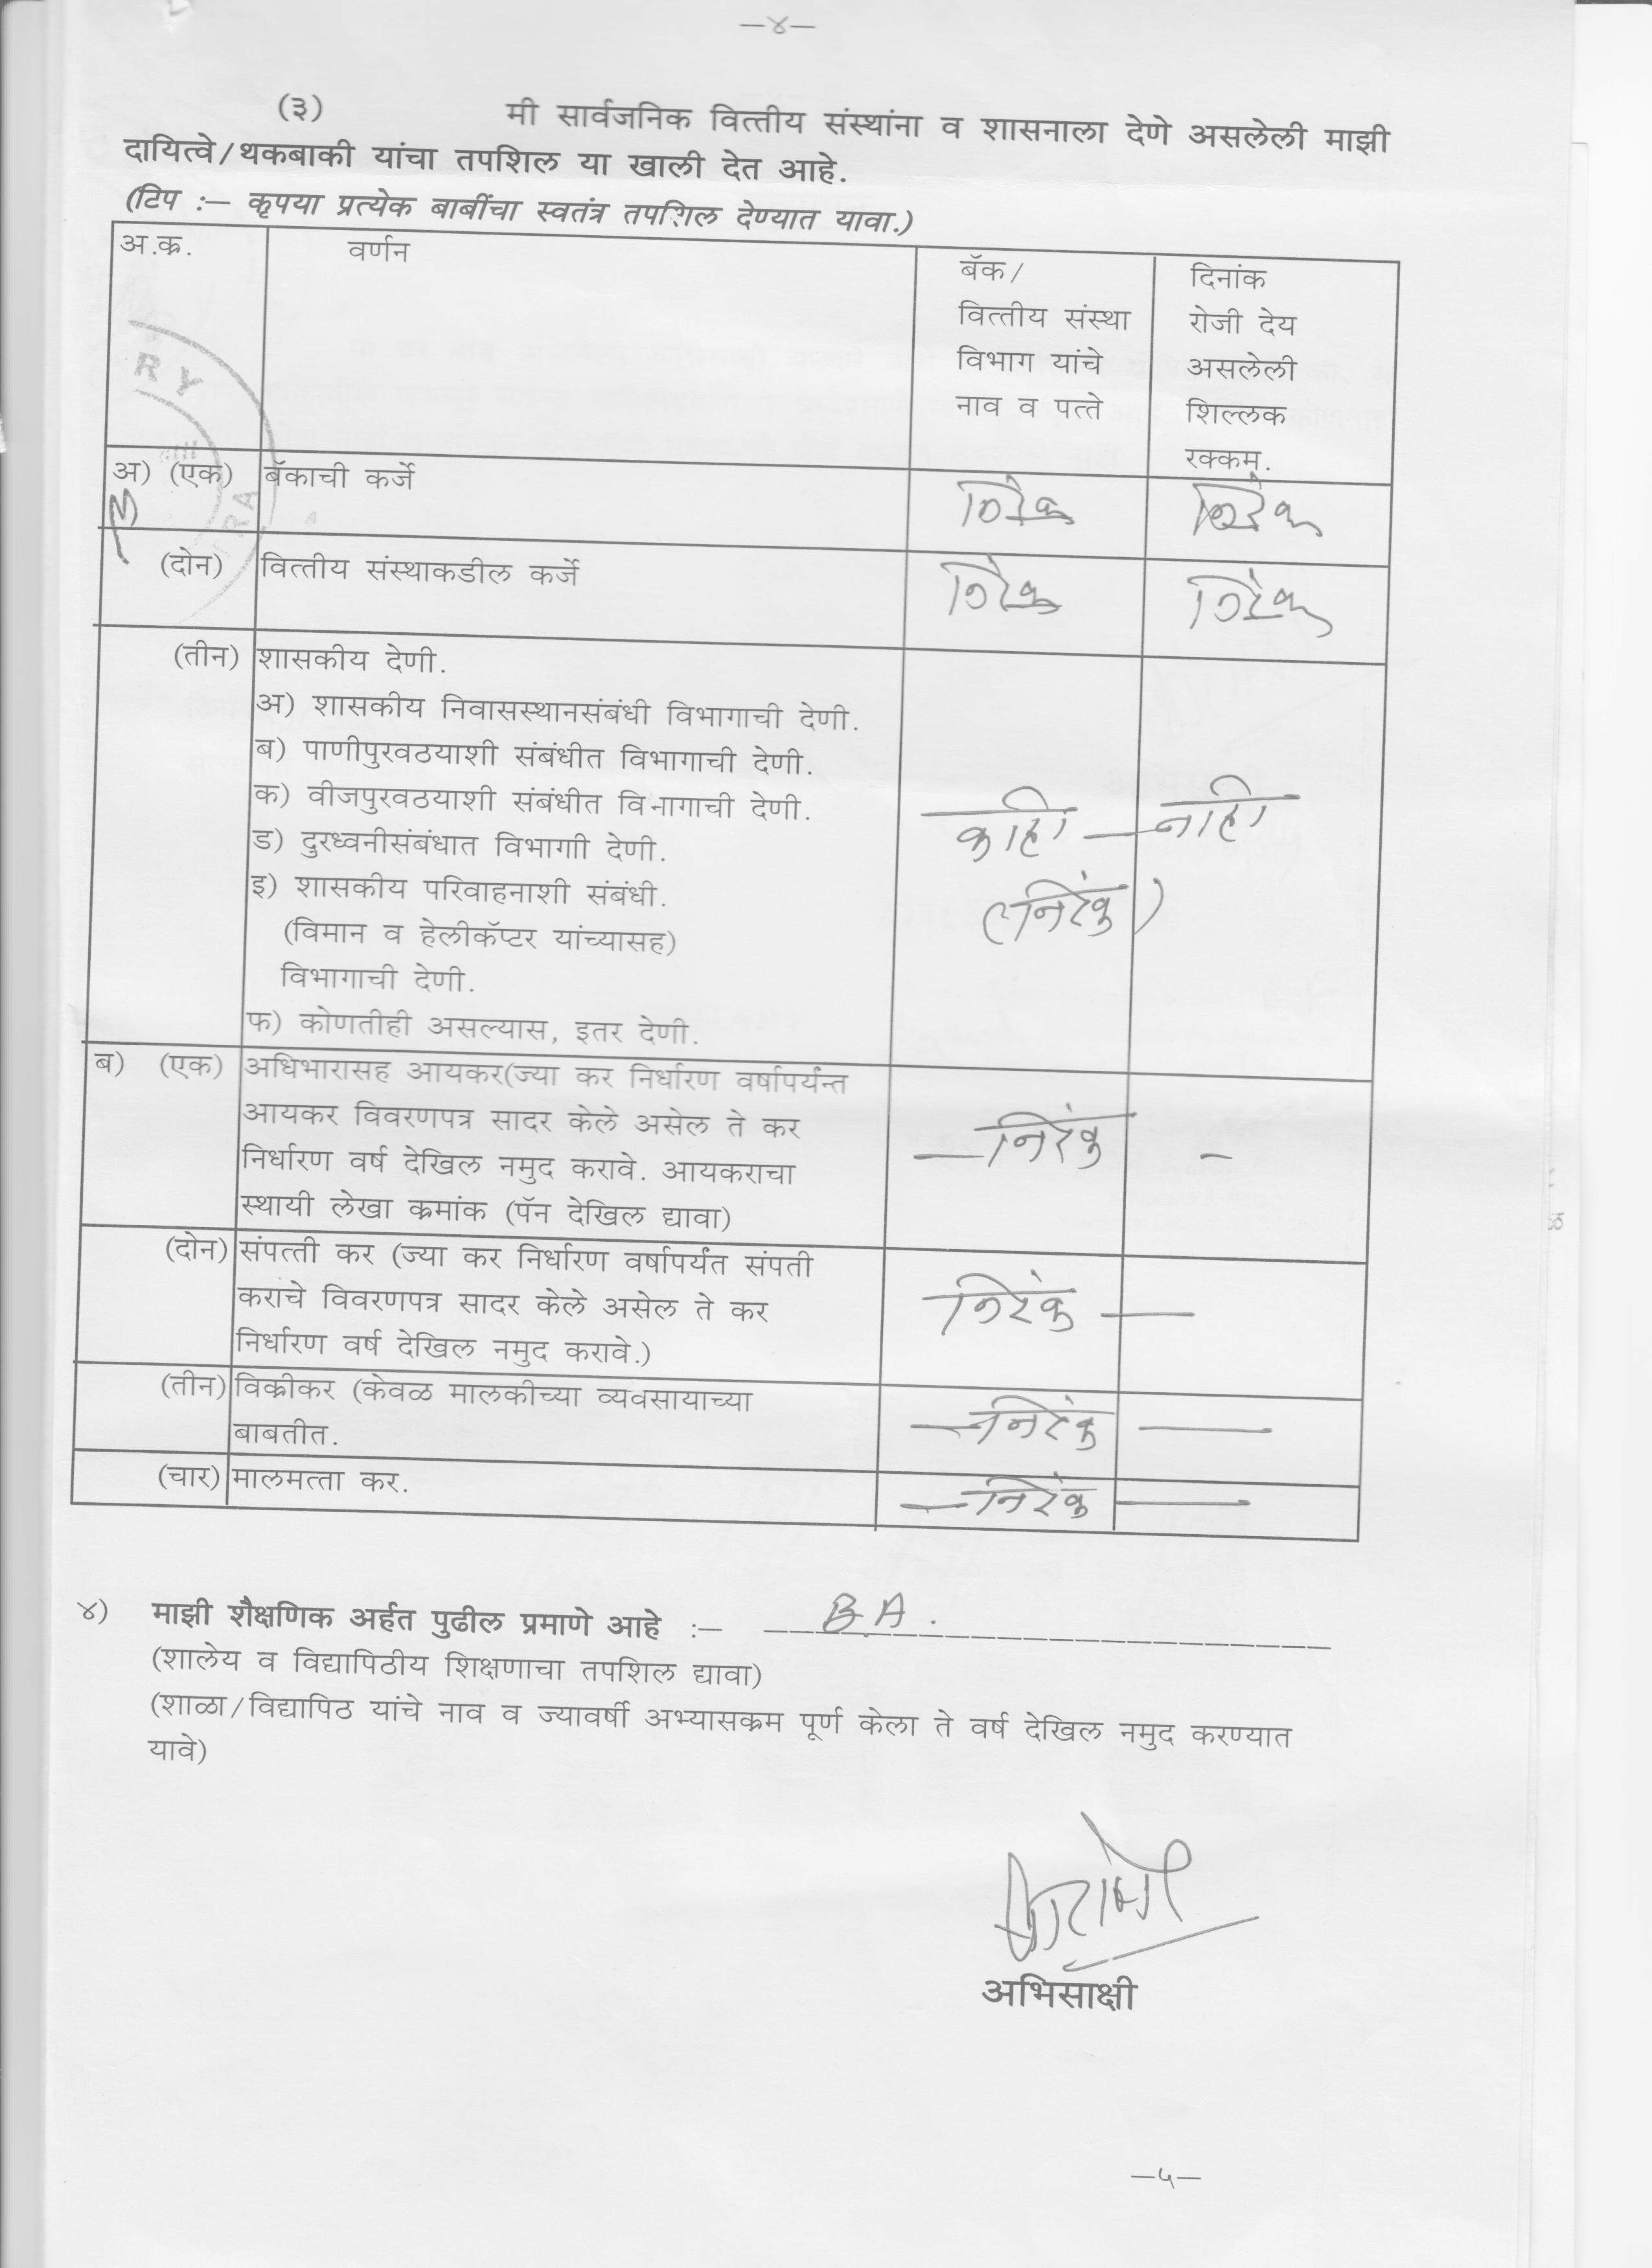 —४—
(३) मी सार्वजनिक वित्तीय संस्थांना व शासनाला देणे असलेली माझी
दायित्वे/थकबाकी यांचा तपशिल या खाली देत आहे.
(टिप :— कृपया प्रत्येक बाबींचा स्वतंत्र तपशिल देण्यात यावा.)
अ.क्र. वर्णन बॅक/ दिनांक
वित्तीय संस्था रोजी देय
विभाग यांचे असलेली
नाव व पत्ते शिल्लक
रक्कम.
RY
RA
अ) (एक) बॅकाची कर्जे निरंक निरंक
(दोन) वित्तीय संस्थाकडील कर्जे निरंक निरंक
(तीन) शासकीय देणी.
अ) शासकीय निवासस्थानसंबंधी विभागाची देणी.
ब) पाणीपुरवठयाशी संबंधीत विभागाची देणी.
क) वीजपुरवठयाशी संबंधीत विभागाची देणी. काही — नाही
ड) दुरध्वनीसंबंधात विभागाी देणी.
इ) शासकीय परिवाहनाशी संबंधी. (निरंक)
(विमान व हेलीकॅप्टर यांच्यासह)
विभागाची देणी.
फ) कोणतीही असल्यास, इतर देणी.
ब) (एक) अधिभारासह आयकर(ज्या कर निर्धारण वर्षापर्यन्त
आयकर विवरणपत्र सादर केले असेल ते कर — निरंक -
निर्धारण वर्ष देखिल नमुद करावे. आयकराचा
स्थायी लेखा क्रमांक (पॅन देखिल द्यावा)
(दोन) संपत्ती कर (ज्या कर निर्धारण वर्षापर्यंत संपती
कराचे विवरणपत्र सादर केले असेल ते कर निरंक —
निर्धारण वर्ष देखिल नमुद करावे.)
(तीन) विक्रीकर (केवळ मालकीच्या व्यवसायाच्या
बाबतीत. — निरंक —
(चार) मालमत्ता कर. — निरंक —
४) माझी शैक्षणिक अर्हत पुढील प्रमाणे आहे :— B A .
(शालेय व विद्यापिठीय शिक्षणाचा तपशिल द्यावा)
(शाळा/विद्यापिठ यांचे नाव व ज्यावर्षी अभ्यासक्रम पूर्ण केला ते वर्ष देखिल नमुद करण्यात
यावे)
अभिसाक्षी
—५—